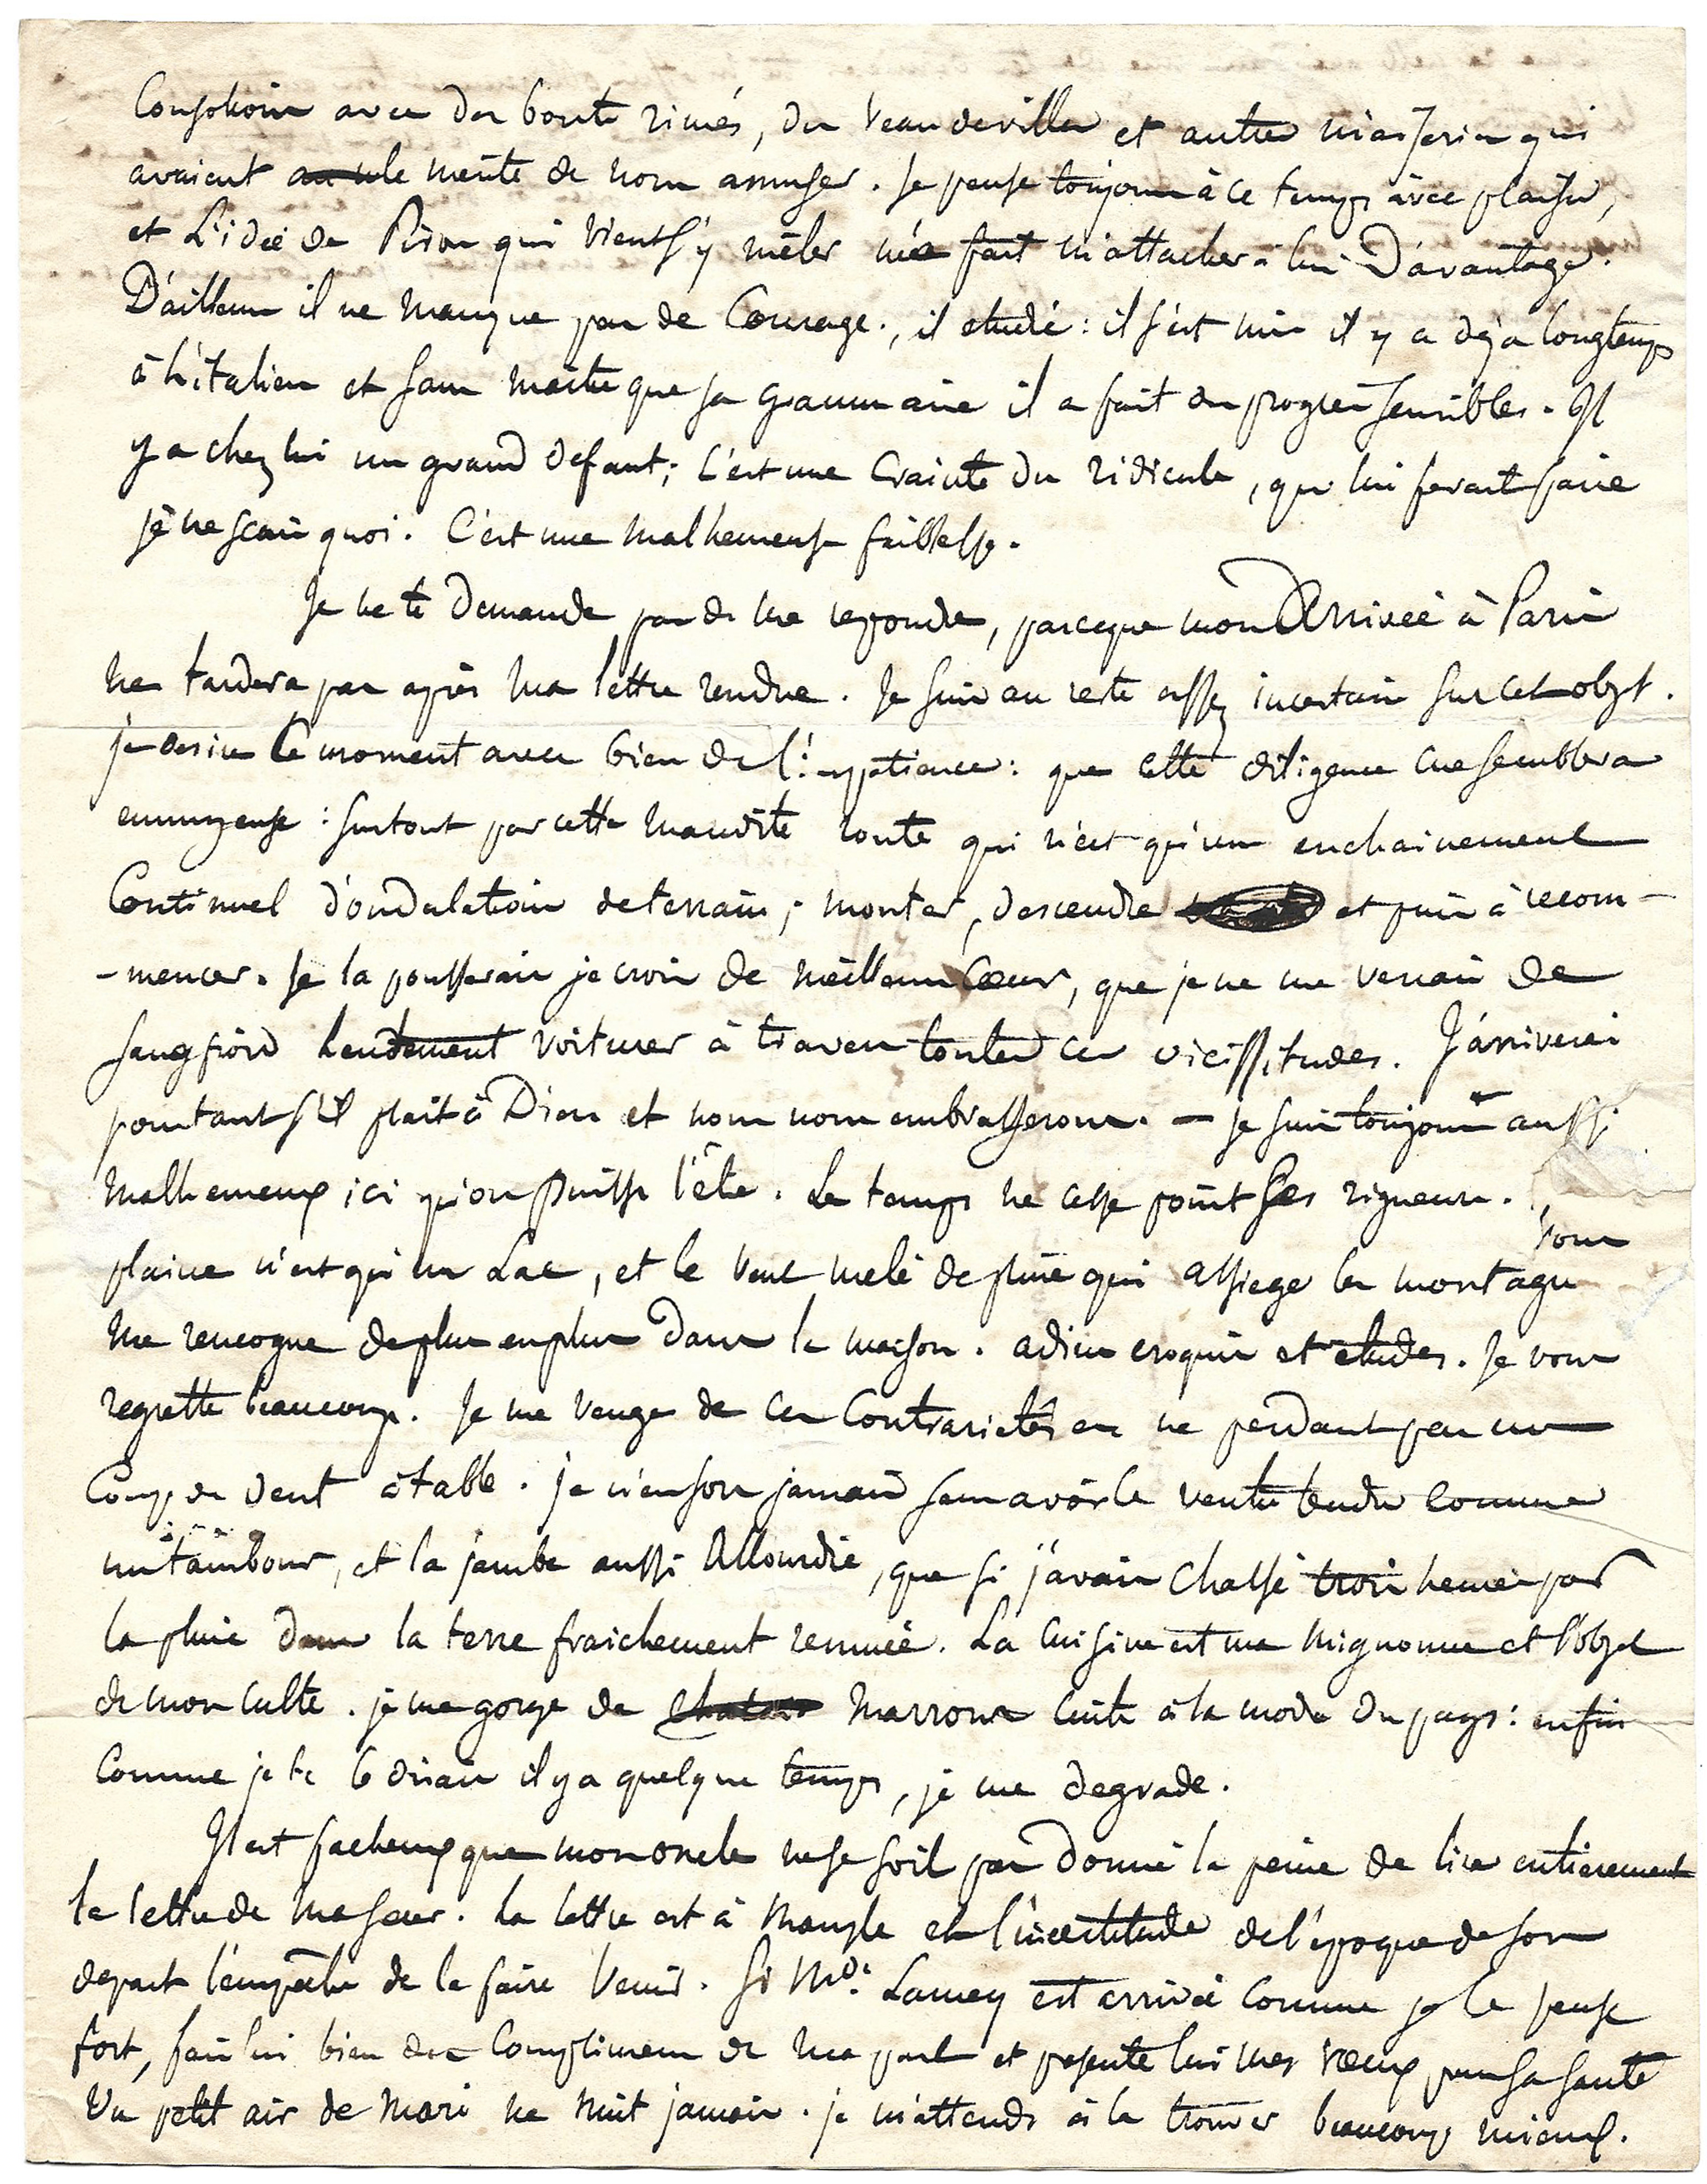 consolions avec des bouts rimés, des Vaudevilles et autres niaiseries qui
avaient le merite de nous amuser. Je pense toujours à ce temps avec plaisir,
et L'idée de Piron qui vient s'y mêler me fait m'attacher à lui D'avantage.
D'ailleurs il ne manque pas de Courage, il etudie : il s'est mis il y a dejà longtemps
à L'italien et sans maitre que sa grammaire il a fait des progrès sensibles. Il
y a chez lui un grand defaut; C'est une Crainte du ridicule, qui lui ferait faire
je ne scais quoi. C'est une malheureuse faiblesse.
Je ne te Demande pas de me repondre, parceque mon Arrivée à Paris
ne tardera pas après ma lettre rendue. Je suis au reste assez incertain sur cet objet.
je desire ce moment avec bien de l'impatience : que cette diligence me semblera
ennuyeuse : surtout par cette maudite route qui n'est qu'un enchainement
Continuel d'ondulations de terrain ; monter, descendre et puis à recom-
-mencer. Je la pousserais je crois de meilleur Cœur, que je ne me verrais de
sang froid Lentement voiturer à travers toutes ces vicissitudes. J'arriverai
pourtant s'il plait à Dieu et nous nous embrasserons. — Je suis toujours aussi
malheureux ici qu'on puisse l'être. Le temps ne cesse point ses rigueurs.
plaine n'est qu'un Lac, et le vent melé de pluie qui assiege la montagne
me rencogne de plus en plus Dans la maison. adieu croquis et etudes. Je vous
regrette beaucoup. Je me venge de ces Contrarietés en ne perdant pas un
Coup de Dent à table. je n'en sors jamais sans avoir le ventre tendu comme
un tambour, et la jambe aussi Allourdie, que si j'avais chassé trois heures par
la pluie dans la terre fraichement remuée. La cuisine est ma mignonne et l'objet
de mon culte. je me gorge de marrons cuits à la mode du pays : enfin
Comme je te le disais il y a quelque temps, je me degrade.
Il est facheux que mon oncle ne se soit pas donné la peine de lire entierement
la lettre de ma sœur. La lettre est à Mansle et l'incertitude de l'époque de son
depart l'empêche de la faire venir. Si Mde. Lamey est arrivée comme je le pense
fort, fais lui bien des Complimens de ma part et presente lui mes vœux pour sa santé
Un petit air de mari ne nuit jamais. je m'attends à la trouver beaucoup mieux.